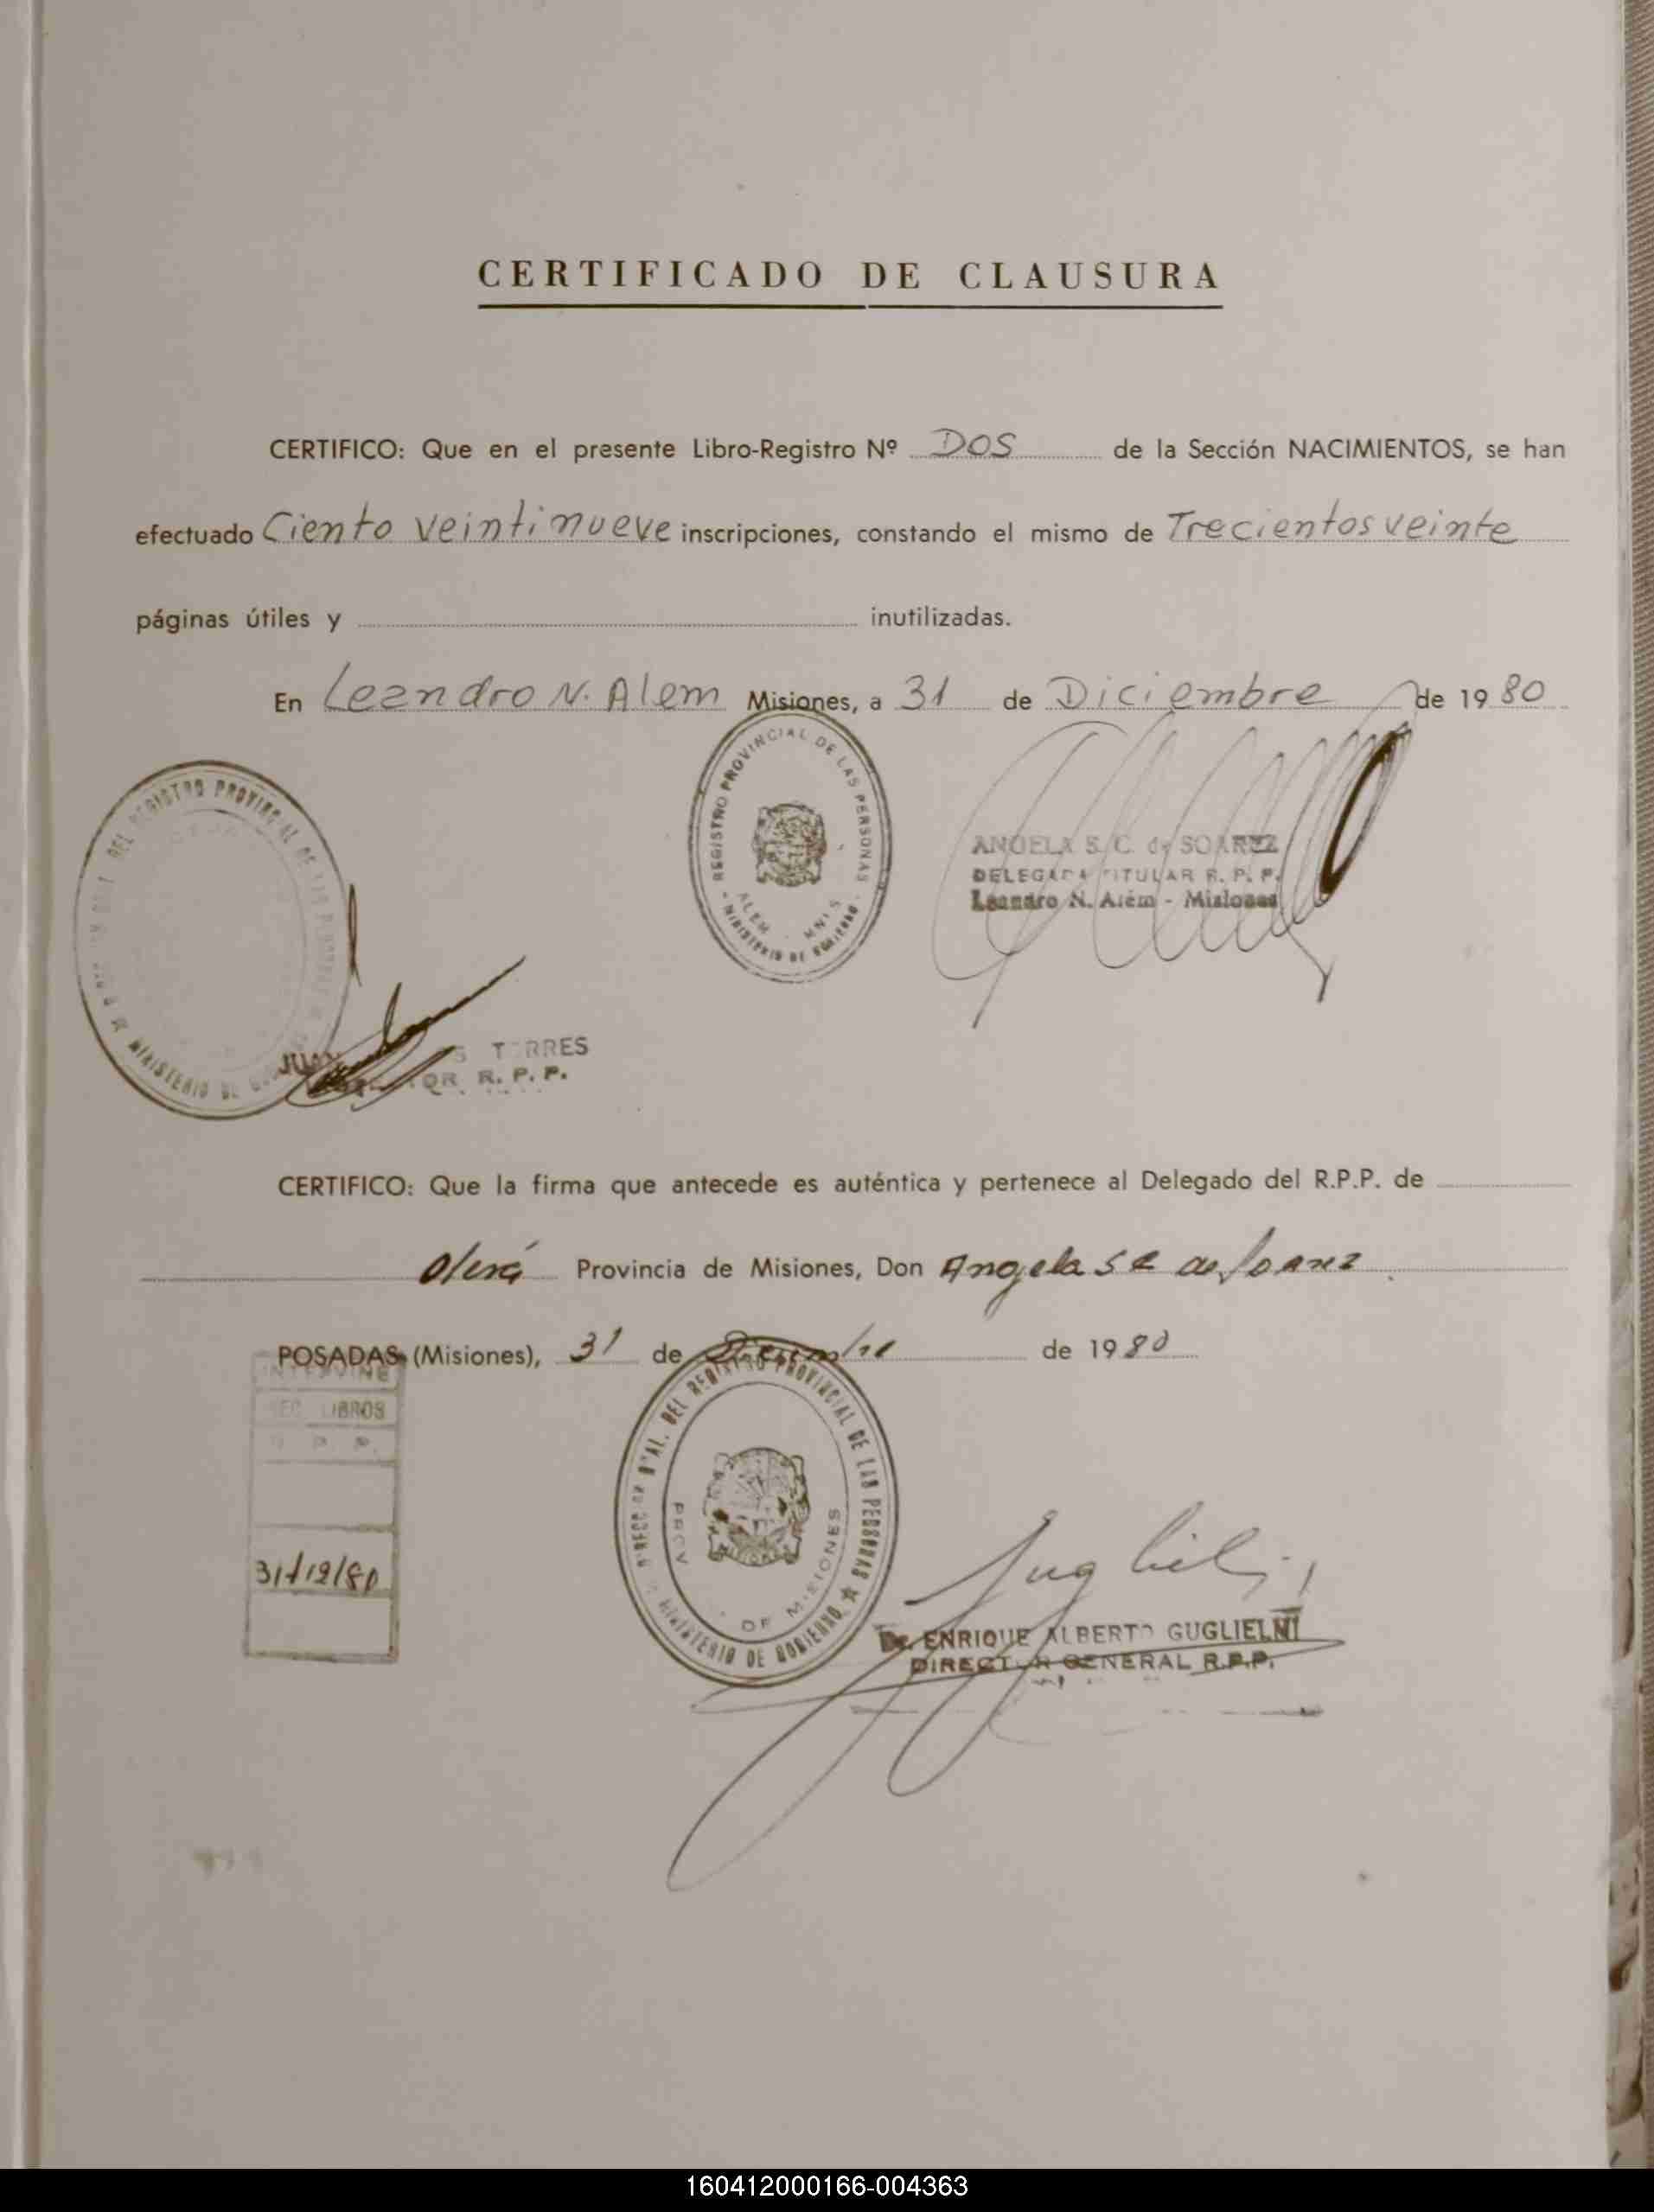 CERTIFICADO DE CLAUSURA
CERTIFICO: Que en el presente Libro-Registro Nº DOS de la Sección NACIMIENTOS, se han
efectuado Ciento veintinueve inscripciones, constando el mismo de Trecientos veinte
páginas útiles y inutilizadas.
En Leandro N. Alem Misiones, a 31 de Diciembre de 1980
REGISTRO PROVINCIAL DE LAS PERSONAS
ALEM - MNES
MINISTERIO DE GOBIERNO
DEL REGISTRO PROVINCIAL DE LAS PERSONAS
MINISTERIO DE
ANGELA S. C. de SOAREZ
DELEGADA TITULAR R. P. P.
Leandro N. Além - Misiones
JUAN TORRES
R. P. P.
CERTIFICO: Que la firma que antecede es auténtica y pertenece al Delegado del R.P.P. de
Provincia de Misiones, Don Angela S C de Soarez
POSADAS (Misiones), 31 de Diciembre de 1980
INTERVINE
SEC. LIBROS
R. P. P.
31/12/80
DIRECCION G'AL. DEL REGISTRO PROVINCIAL DE LAS PERSONAS
PROV. DE MISIONES
MINISTERIO DE GOBIERNO
Dr. ENRIQUE ALBERTO GUGLIELMI
DIRECTOR GENERAL R.P.P.
160412000166-004363